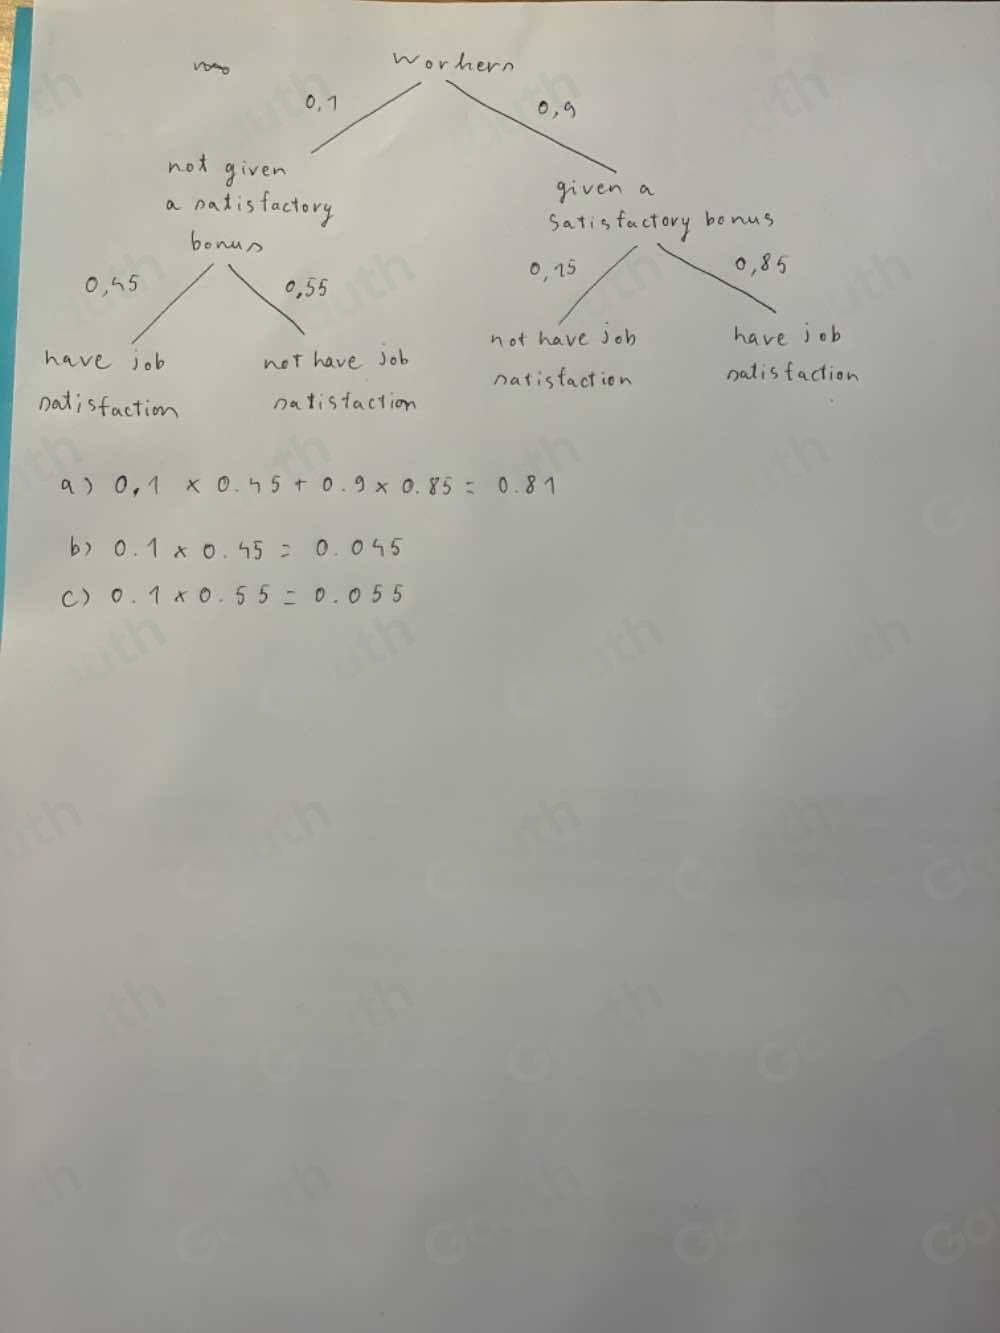 workers
0,1 0,9
not given
a satisfactory
bonus
given a
satisfactory bonus
0,45 0,55 0,15 0,85
have job
satisfaction
not have job
satisfaction
not have job
satisfaction
have job
satisfaction
a) 0,1 × 0.45 + 0.9 × 0.85 = 0.81
b) 0.1 × 0.45 = 0.045
c) 0.1 × 0.55 = 0.055